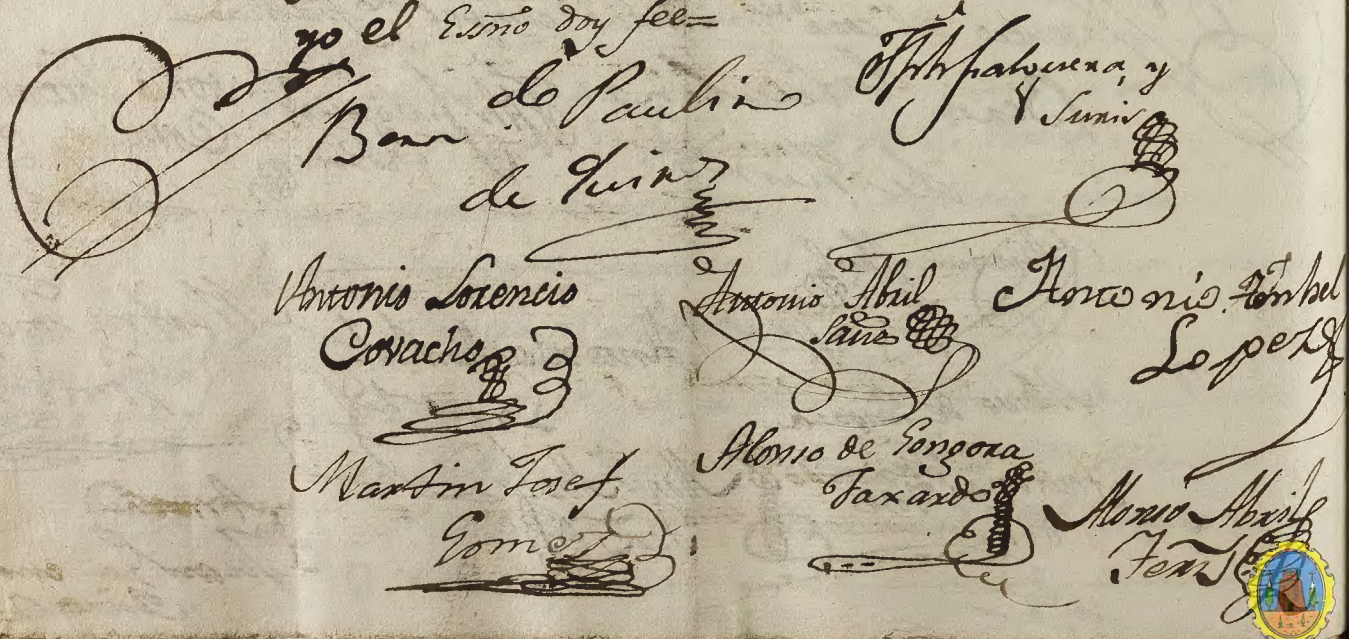 yo el Essno doy fee=
Bena de Paulin
de Quiros
y
Antonio Lorencio
Covacho
Antonio Abril
Antonio
Lopez
Martin Josef
Gomez
Alonso de Gongora
Faxardo
Alonso Abril
Fernz